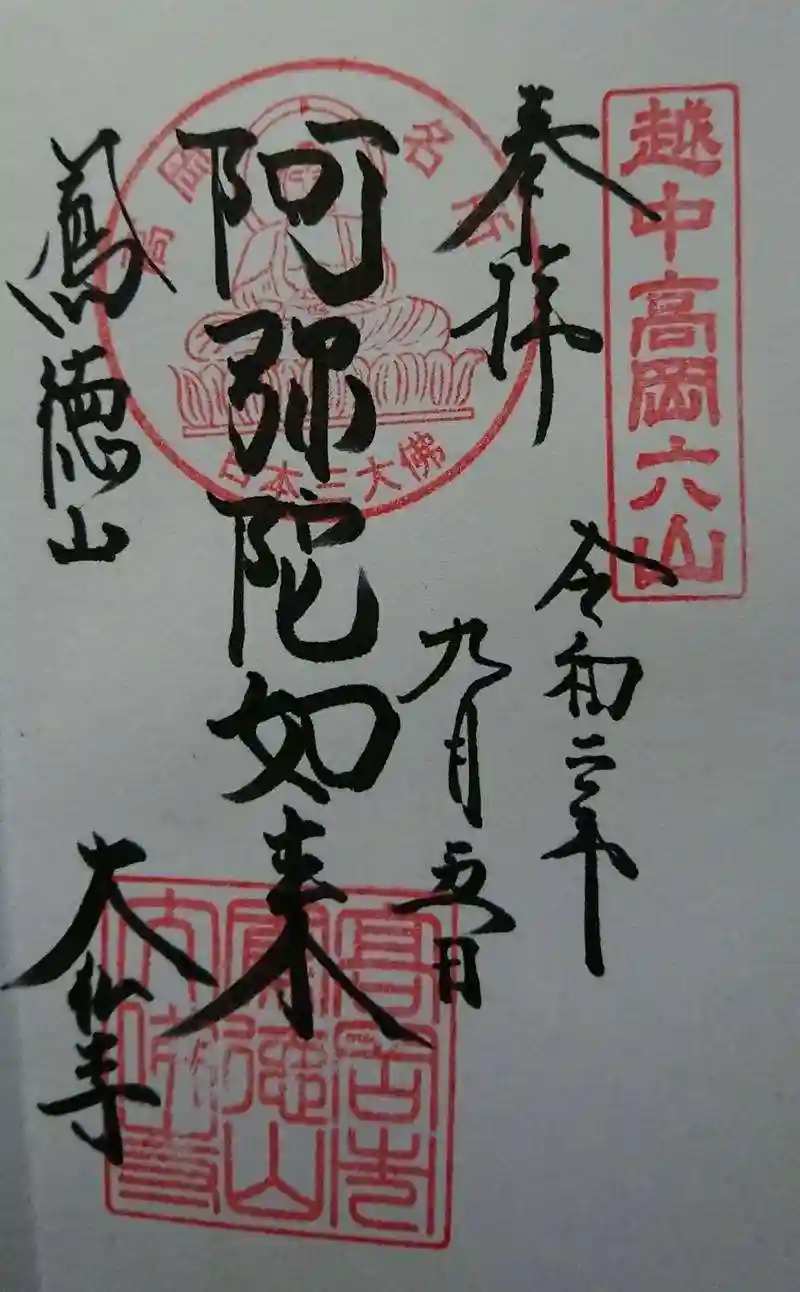 越中高岡六山
奉拝
令和二年
九月五日
高岡名所
日本三大佛
阿弥陀如来
鳳徳山
大仏寺
鳳徳山